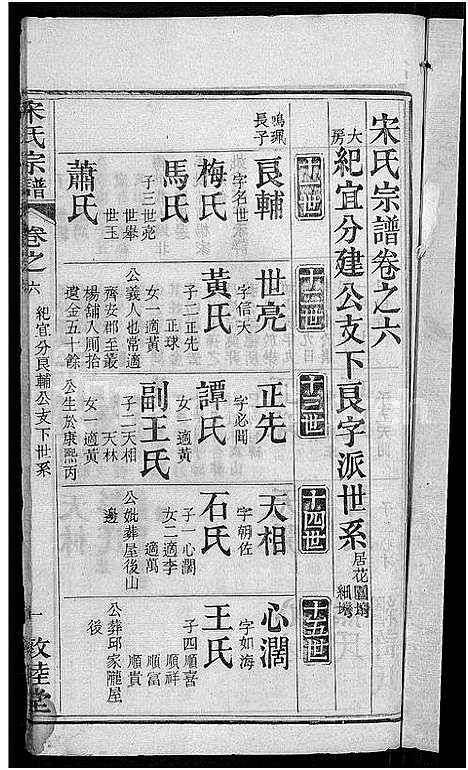 宋氏宗譜卷之六
大房紀宜分建公支下良字派世系
居花園塆
十一世
十二世
十三世
十四世
十五世
鳴珮長子
良輔
字名世
梅氏
馬氏
子三世亮
世舉
世玉
蕭氏
世亮
字信天
黃氏
子二正先
正球
女一適黃
公義人也常適
齊安郡至叢
楊舖入厠拾
遺金五十餘
正先
字必聞
譚氏
女二適黃
副王氏
子二天相
天林
女一適黃
公生於康熙丙
天相
字朝佐
石氏
子一心濶
女二適李
適萬
公妣葬屋後山
邊
心濶
字如海
王氏
子四順喜
順祥
順富
順貴
公葬邱家隴屋
後
宋氏宗譜
卷之六
紀宜分良輔公支下世系
一
敦睦堂